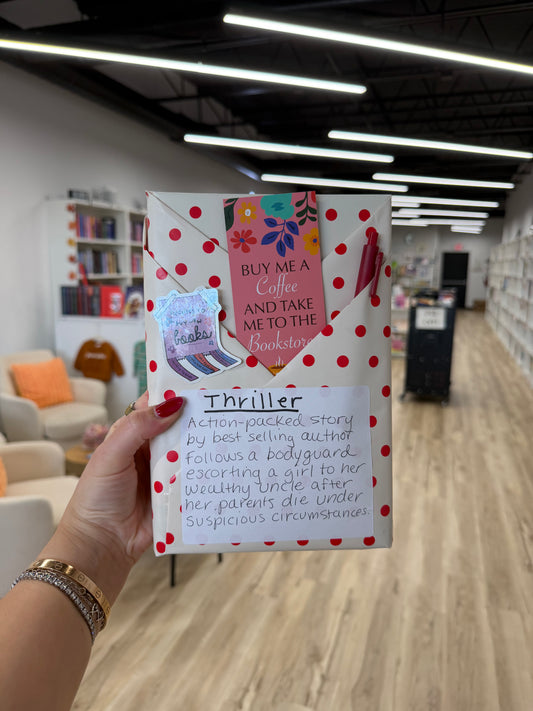 BUY ME A
Coffee
AND TAKE
ME TO THE
Bookstore
books
Thriller
Action-packed story
by best selling author
follows a bodyguard
escorting a girl to her
wealthy uncle after
her parents die under
suspicious circumstances.